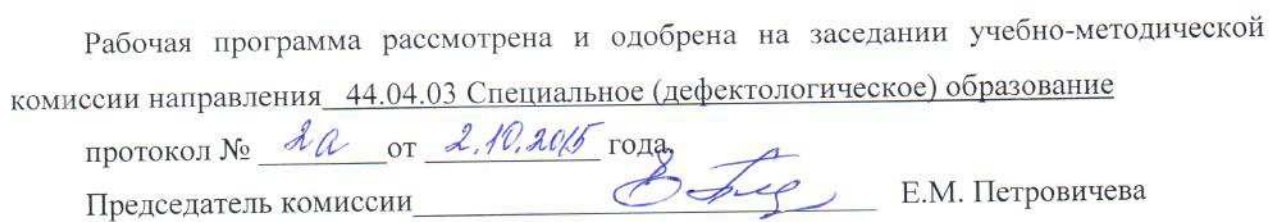 Рабочая программа рассмотрена и одобрена на заседании учебно-методической
комиссии направления 44.04.03 Специальное (дефектологическое) образование
протокол № 2а от 2.10.2015 года.
Председатель комиссии Е.М. Петровичева